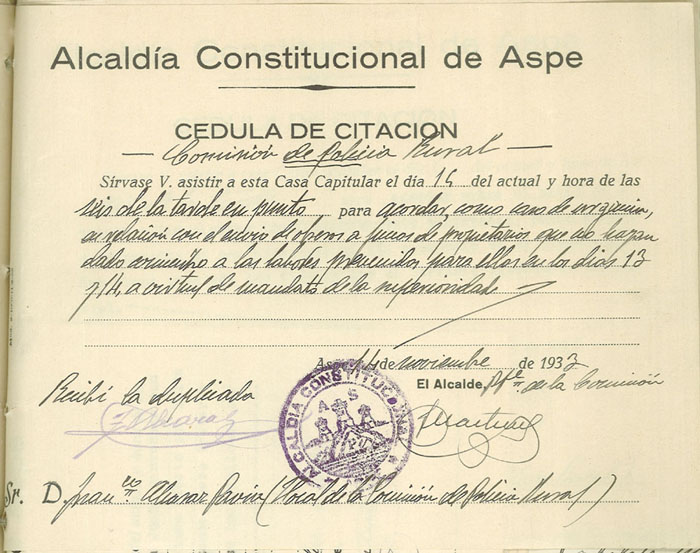 Alcaldía Constitucional de Aspe
CEDULA DE CITACION
Comisión de Policía Rural
Sírvase V. asistir a esta Casa Capitular el día 14 del actual y hora de las
seis de la tarde en punto para acordar, como caso de urgencia,
en relación con el envio de obreros a fincas de propietarios que no hayan
dado a las labores prevenidas para ellos en los dias 13
y 14, a virtud de mandato de la superioridad
14 de noviembre de 1933
El Alcalde, Pte de la Comisión
Recibí la duplicada
ALCALDIA CONSTITUCIONAL
Sr. D. Juan Alvarez Pavía (Vocal de la Comisión de Policía Rural)